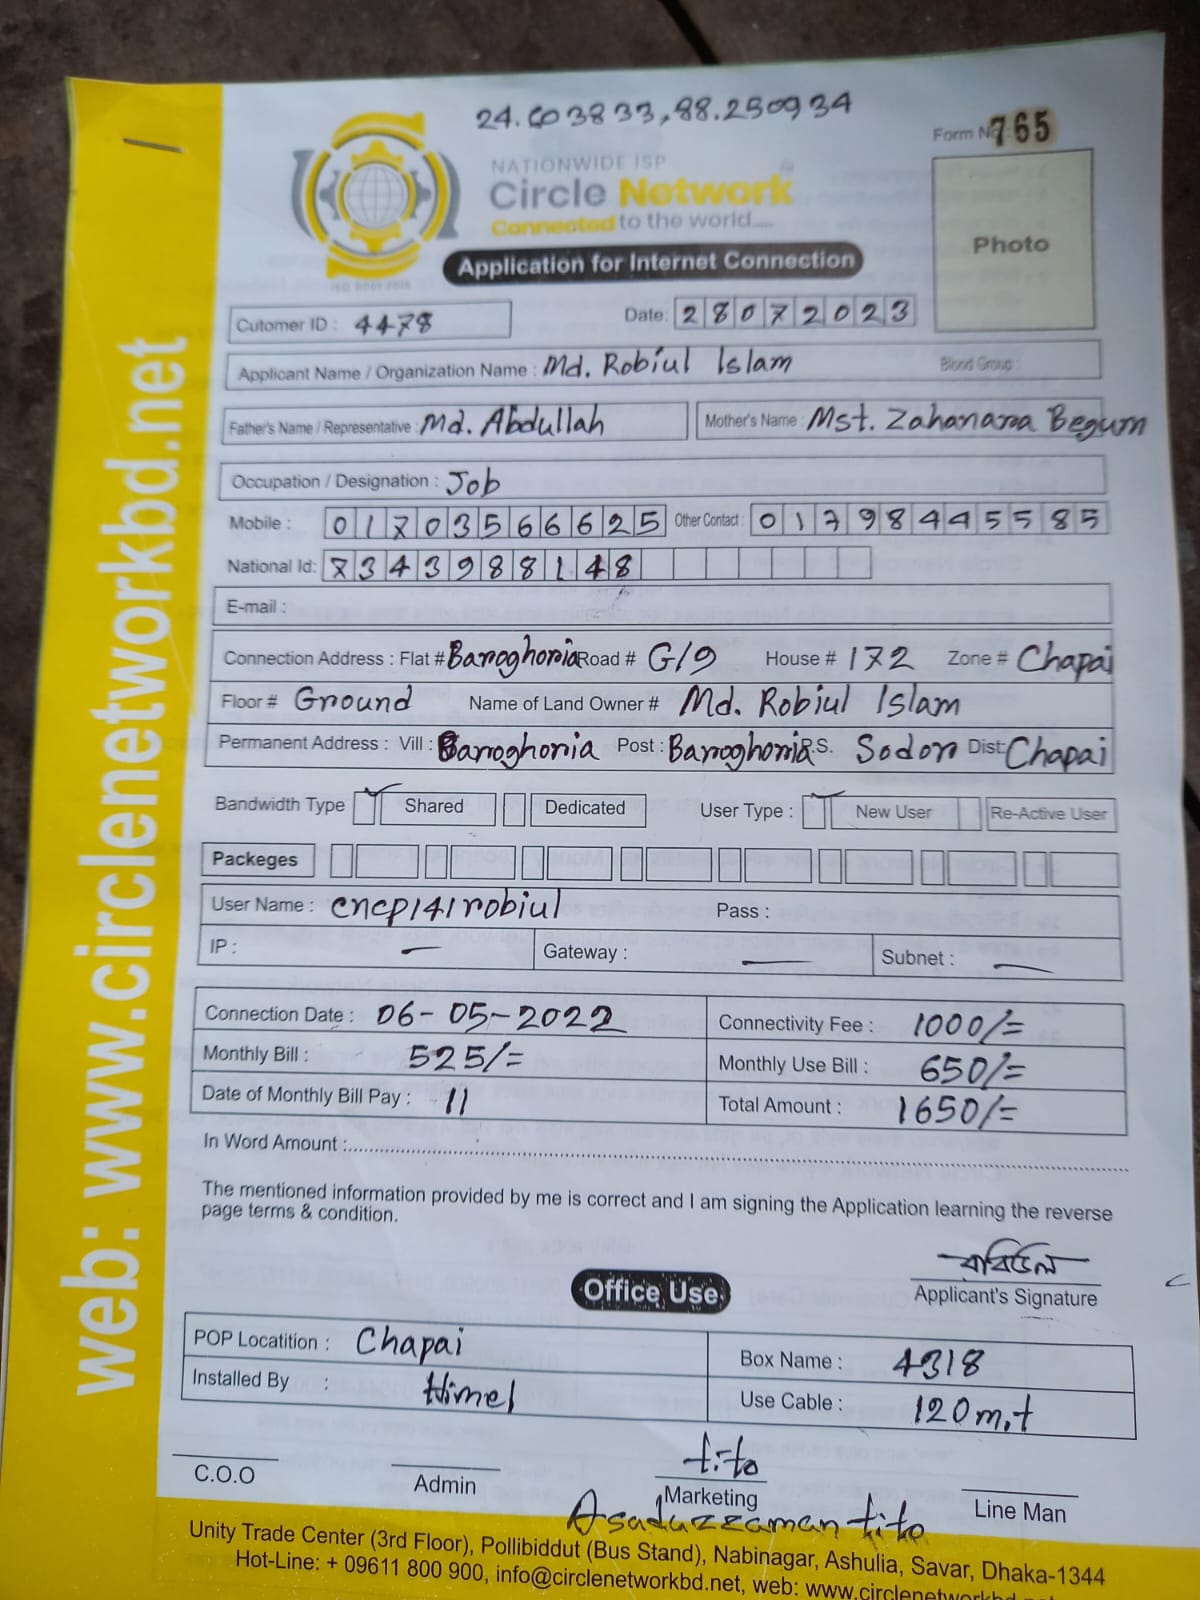 24.603833,88.250934
Form No 765
NATIONWIDE ISP
Circle Network
Connected to the world....
ISO 9001:2015
Photo
Application for Internet Connection
Cutomer ID : 4478
Date: 28072023
Applicant Name / Organization Name : Md. Robiul Islam Blood Group :
Father's Name / Representative : Md. Abdullah Mother's Name : Mst. Zahanara Begum
Occupation / Designation : Job
Mobile : 01703566625 Other Contact : 01798445585
National Id: 7343988148
E-mail :
Connection Address : Flat # Baroghoria Road # G/9 House # 172 Zone # Chapai
Floor # Ground Name of Land Owner # Md. Robiul Islam
Permanent Address : Vill : Baroghoria Post : Baroghoria P.S. Sodor Dist: Chapai
Bandwidth Type Shared Dedicated User Type : New User Re-Active User
Packeges
User Name : cncp141robiul Pass :
IP : — Gateway : — Subnet : —
Connection Date : 06-05-2022 Connectivity Fee : 1000/=
Monthly Bill : 525/= Monthly Use Bill : 650/=
Date of Monthly Bill Pay : 11 Total Amount : 1650/=
In Word Amount :
The mentioned information provided by me is correct and I am signing the Application learning the reverse
page terms & condition.
রবিউল
Applicant's Signature
Office Use
POP Locatition : Chapai Box Name : 4318
Installed By : Himel Use Cable : 120 m.t
tito
C.O.O Admin Marketing Line Man
Asaduzzaman tito
Unity Trade Center (3rd Floor), Pollibiddut (Bus Stand), Nabinagar, Ashulia, Savar, Dhaka-1344
Hot-Line: + 09611 800 900, info@circlenetworkbd.net, web: www.circlenetworkbd.net
web: www.circlenetworkbd.net